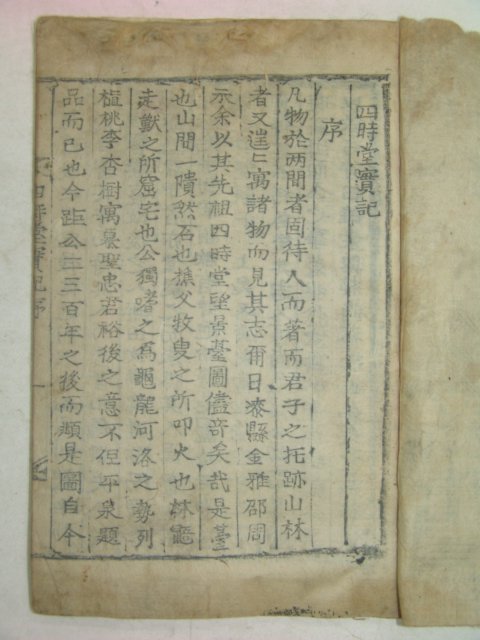 四時堂實記
序
凡物於两間者固待人而著而君子之托跡山林
者又遑〻寓諸物而見其志爾日泰縣金雅邵周
示余以其先祖四時堂望景臺圖儘奇矣哉是臺
也山間一隤然石也樵父牧叟之所叩火也鼪鼯
走獸之所窟宅也公獨嗜之爲龜龍河洛之勢列
植桃李杏樹寓慕聖忠君裕後之意不但平泉題
品而已也今距公二三百年之後而顯是圖自今
四時堂實記 序